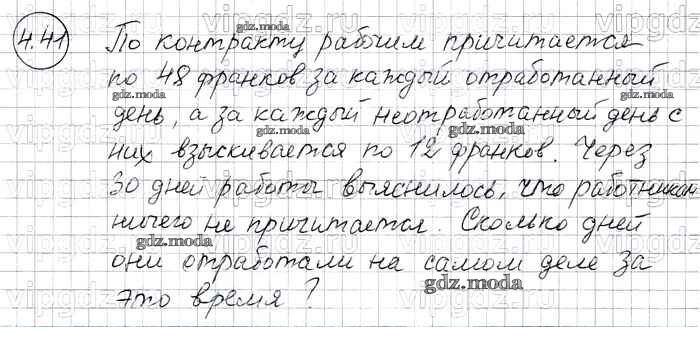 4.41 По контракту рабочим причитается
по 48 франков за каждый отработанный
день, а за каждый неотработанный день с
них взыскивается по 12 франков. Через
30 дней работы выяснилось, что работникам
ничего не причитается. Сколько дней
они отработали на самом деле за
это время?
gdz.moda
gdz.moda
gdz.moda
gdz.moda
gdz.moda
gdz.moda
gdz.moda
gdz.moda
vipgdz.ru